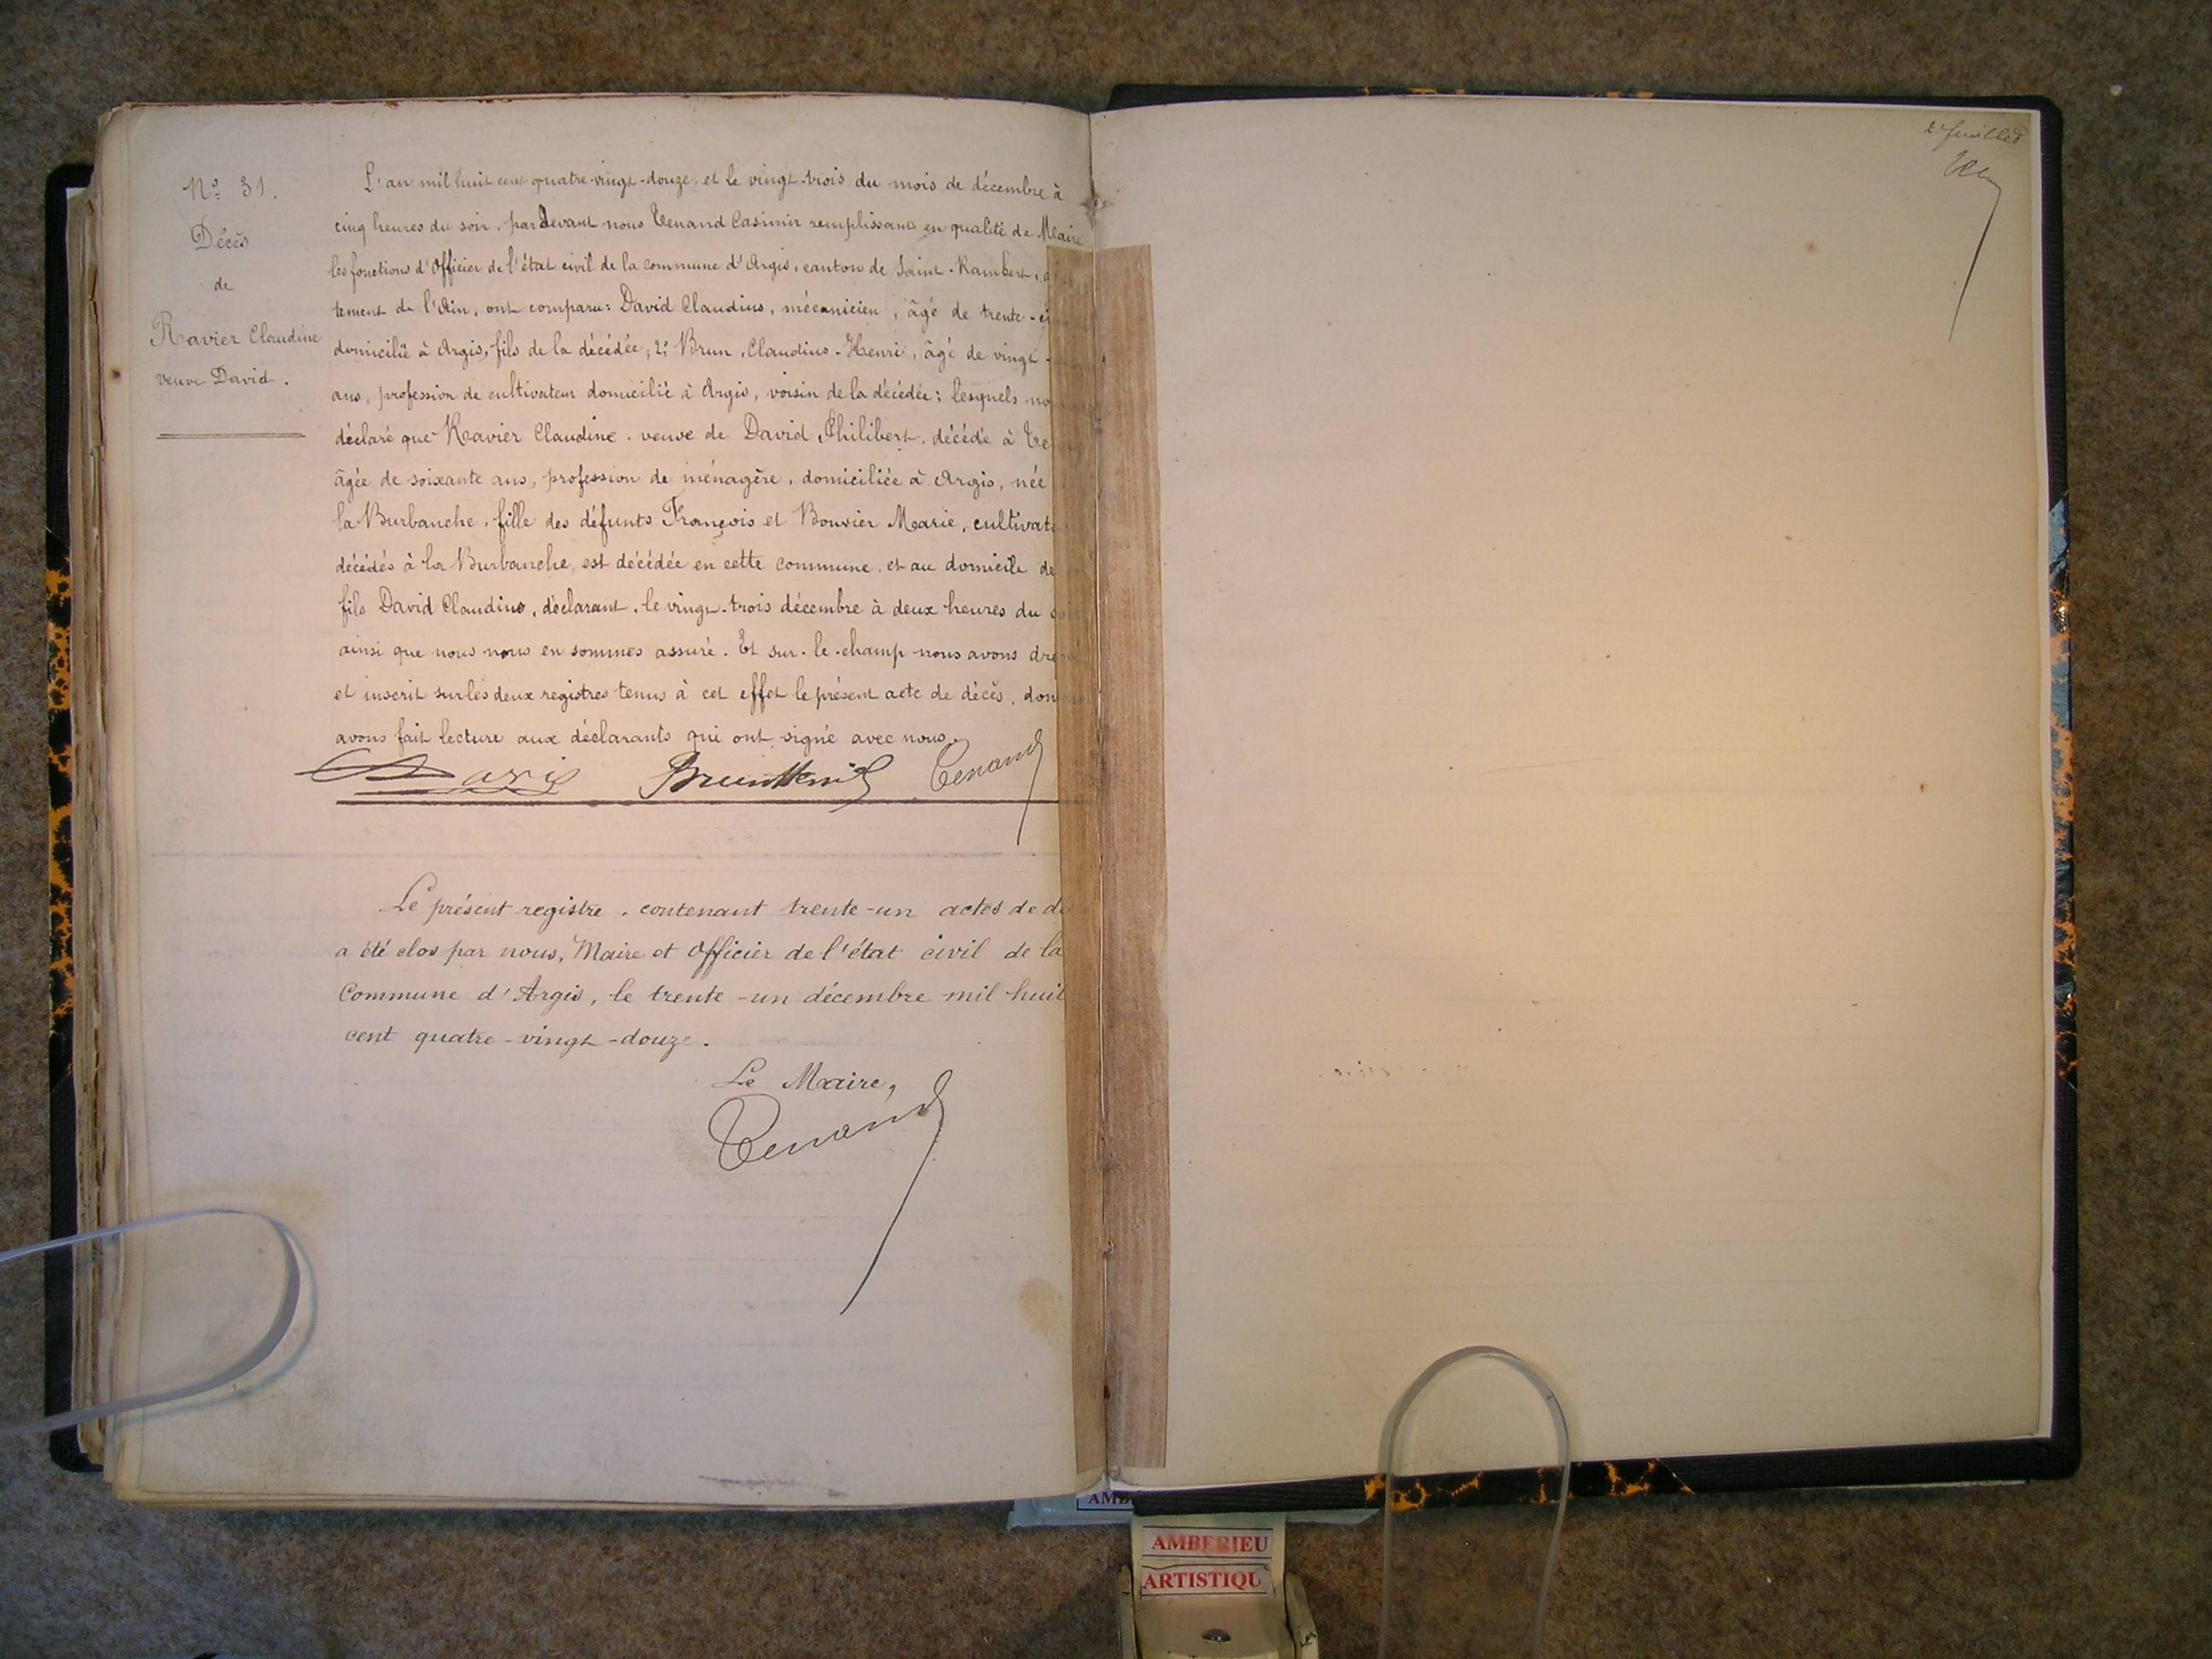 Nº 31.
Décès
de
Ravier Claudine
veuve David.
L'an mil huit cent quatre-vingt-douze, et le vingt-trois du mois de décembre à
cinq heures du soir, par devant nous Tenand Casimir remplissant en qualité de Maire
les fonctions d'Officier de l'état civil de la commune d'Argis, canton de Saint-Rambert,
tement de l'Ain, ont comparu: David Claudius, mécanicien, âgé de trente-
domicilié à Argis, fils de la décédée; 2º Brun, Claudius-Henri, âgé de vingt-
ans, profession de cultivateur domicilié à Argis, voisin de la décédée; lesquels
déclaré que Ravier Claudine, veuve de David Philibert, décédé à
âgée de soixante ans, profession de ménagère, domiciliée à Argis, née
la Burbanche, fille des défunts François et Bouvier Marie, cultivat
décédés à la Burbanche, est décédée en cette commune, et au domicile de
fils David Claudius, déclarant, le vingt-trois décembre à deux heures du
ainsi que nous nous en sommes assuré. Et sur-le-champ nous avons
et inscrit sur les deux registres tenus à cet effet le présent acte de décès, don
avons fait lecture aux déclarants qui ont signé avec nous.
David Brun Henri Tenand
Le présent registre, contenant trente-un actes de
a été clos par nous, Maire et Officier de l'état civil de la
Commune d'Argis, le trente-un décembre mil huit
cent quatre-vingt-douze.
Le Maire,
Tenand
feuillet
AMBERIEU
ARTISTIQU